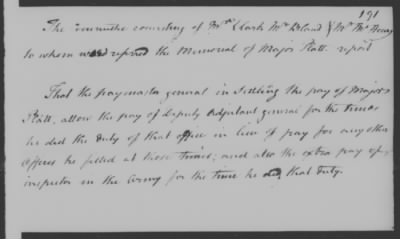 191
The Committee consisting of Mr Clark Mr Bland & Mr McHenry
to whom was referred the Memorial of Major Platt report
That the paymaster general in settling the pay of Major
Platt, allow the pay of Deputy Adjutant general for the times
he did the duty of that office in lieu of pay for any other
offices he filled at those times; and also the extra pay of
inspector in the Army for the time he did that duty.